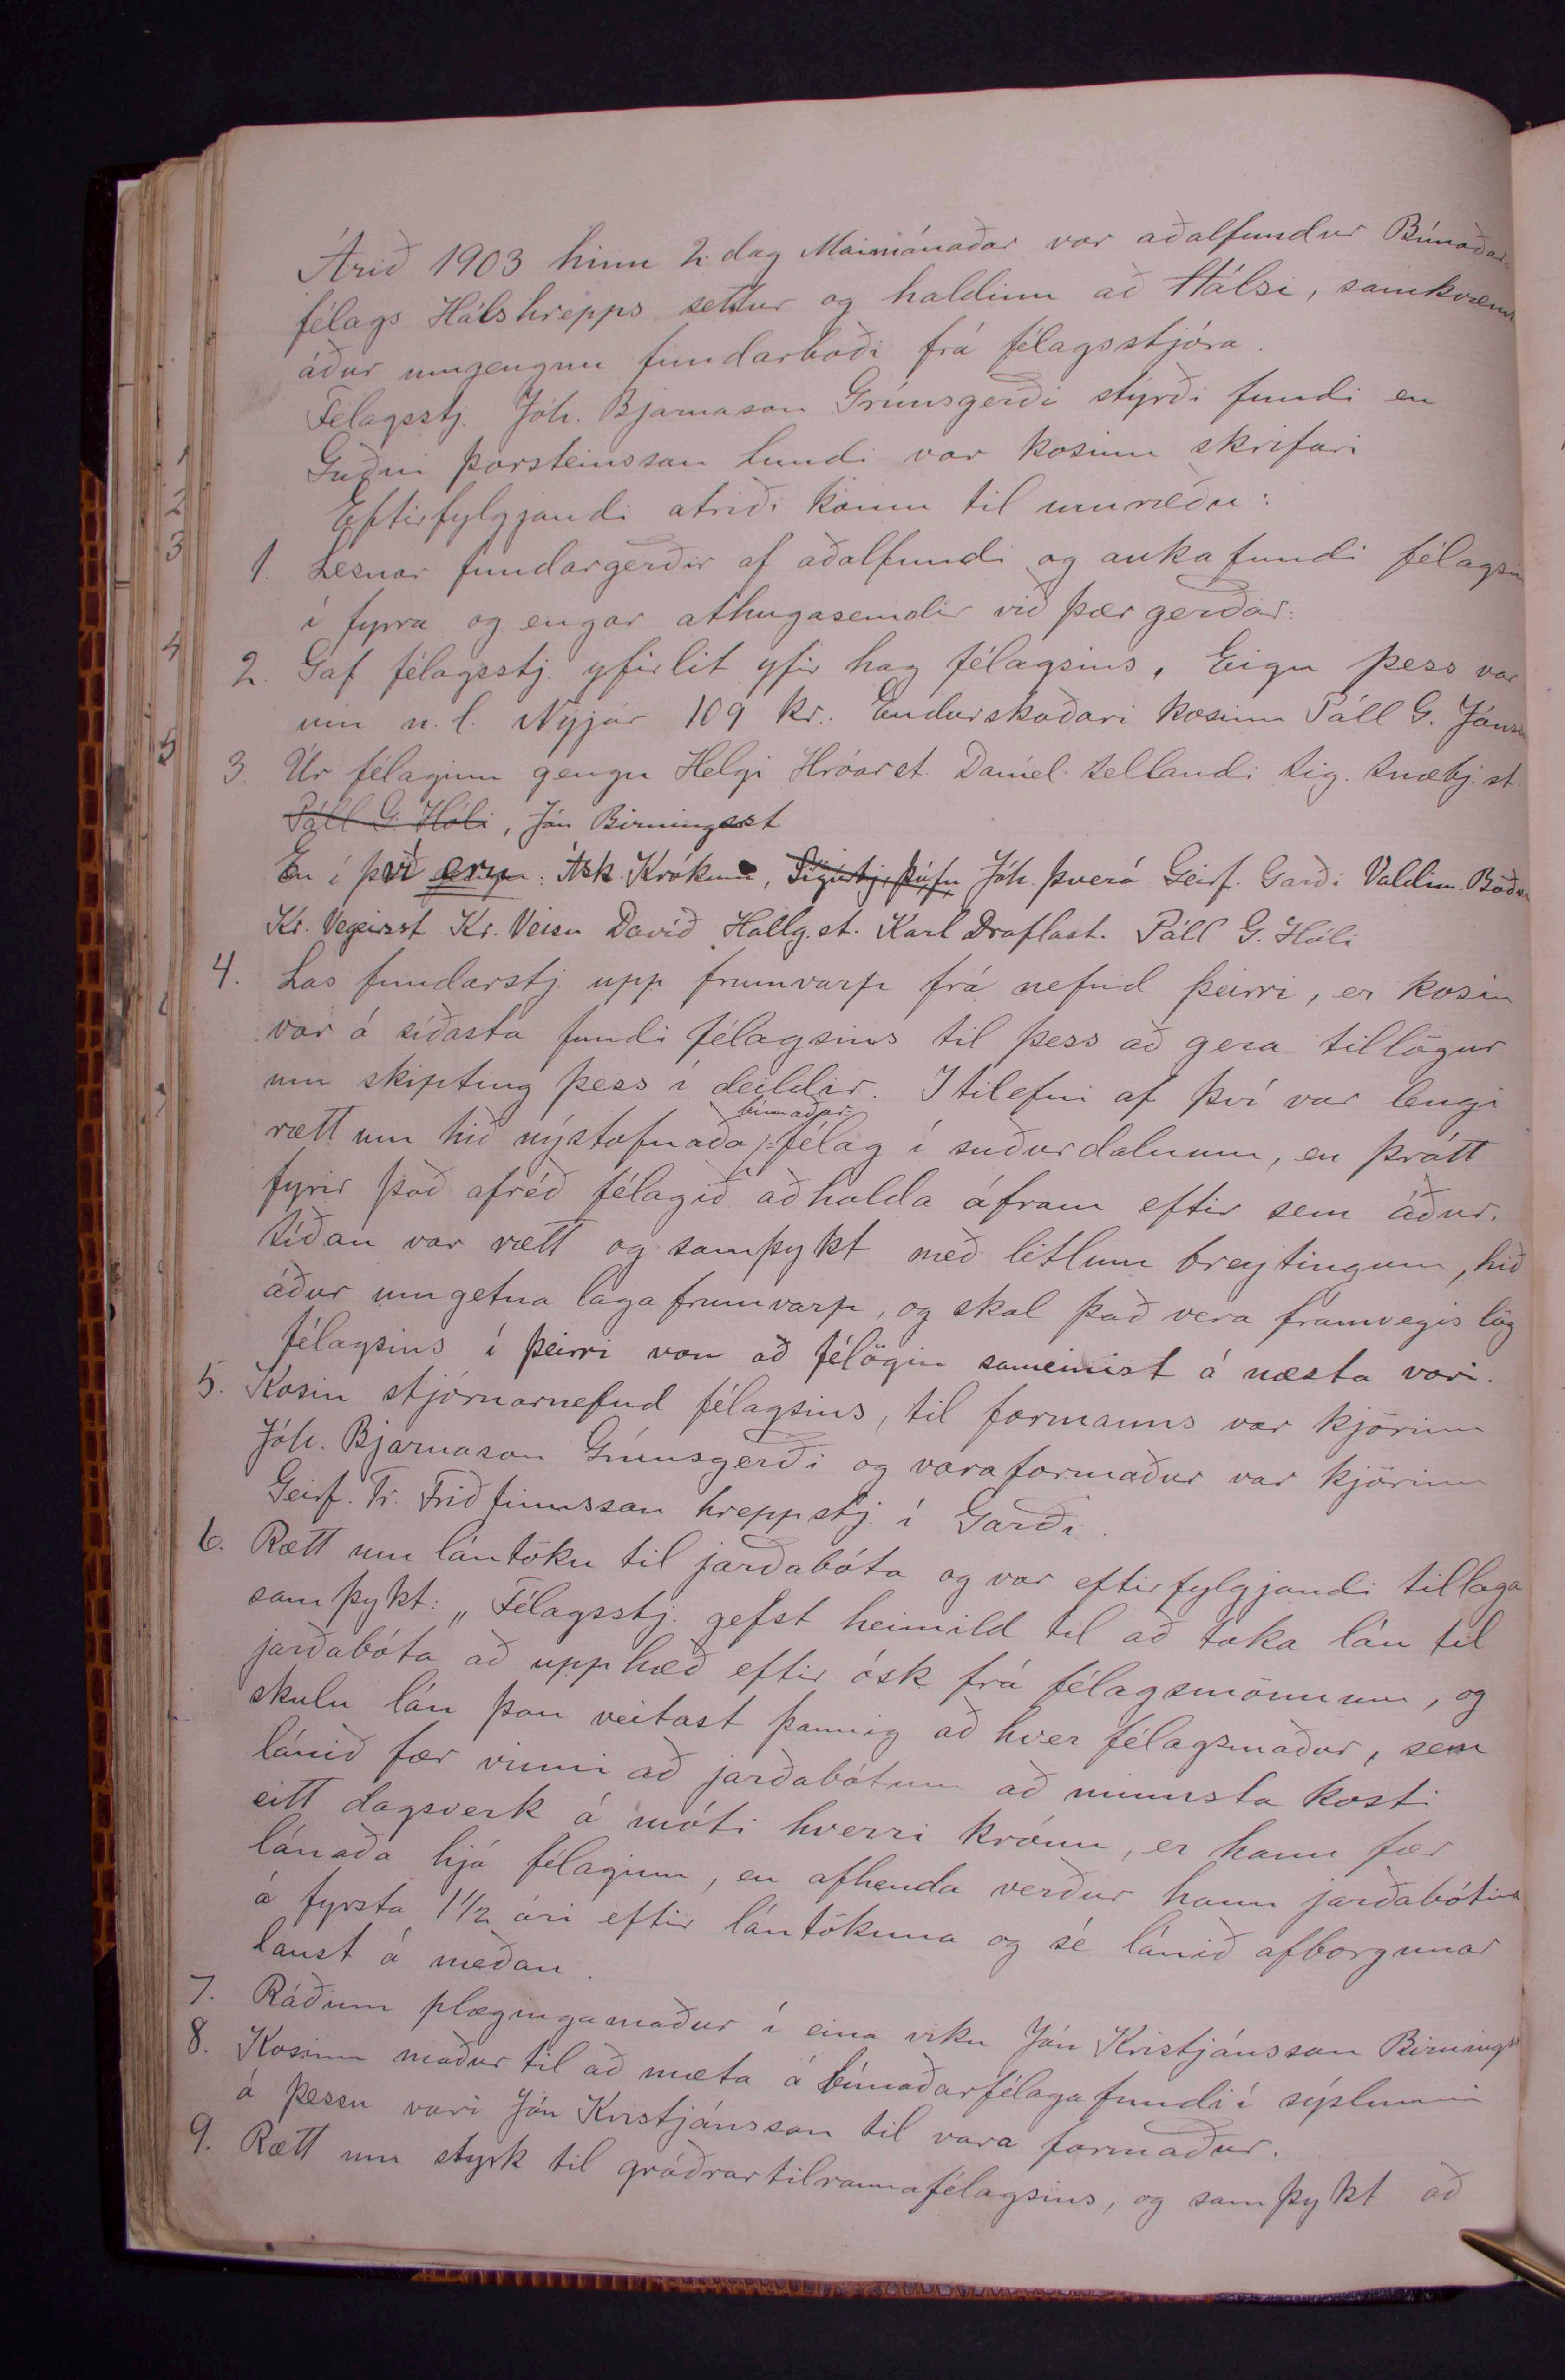 Árið 1903 hinn 2. dag Maimánaðar var aðalfundur Búnaðar-
félags Hálshrepps settur og haldinn að Hálsi, samkvæmt
áður umgengnu fundarboði frá félagsstjóra.
Félagsstj. Jóh. Bjarnason Grímsgerði stýrði fundi en
Guðni Þorsteinsson Lundi var kosinn skrifari
Eftirfylgjandi atriði komu til umræðu:
1. Lesnar fundargerðir af aðalfundi og aukafundi félagsins
í fyrra og engar athugasemdir við þær gerðar.
2. Gaf félagsstj. yfirlit yfir hag félagsins. Eign þess var
um n.l. Nýjár 109 kr. Endurskoðari kosinn Páll G. Jónss
3. Úr félaginu gengu Helgi Hróarst. Daníel Sellandi Sig. Snæbj.st.
Páll G. Hóli, Jón Birningsst
En í það eru: Ásk. Krókum, Sigurbj. Þúfu Jóh. Þverá Geirf. Garði Valdim. Böðv
Kr. Vegeirsst Kr. Veisu Davíð Hallg.st. Karl Draflast. Páll G. Hóli
4. Las fundarstj. upp frumvarp frá nefnd þeirri, er kosin
var á síðasta fundi félagsins til þess að gera tillögur
um skipting þess í deildir. I tilefni af því var lengi
rætt um hið nýstofnaða búnaðar-félag í suðurdalnum, en þrátt
fyrir það afréð félagið að halda áfram eftir sem áður.
Síðan var rætt og samþykt með litlum breytingum, hið
áður umgetna lagafrumvarp, og skal það vera framvegis lög
félagsins í þeirri von að félögin sameinist á næsta vori.
5. Kosin stjórnarnefnd félagsins, til formanns var kjörinn
Jóh. Bjarnason Grímsgerði og varaformaður var kjörinn
Geirf. Tr. Friðfinnsson hreppstj. í Garði.
6. Rætt um lántöku til jarðabóta og var eftirfylgjandi tillaga
samþykt: „Félagsstj. gefst heimild til að taka lán til
jarðabóta að upphæð eftir ósk frá félagsmönnum, og
skulu lán þau veitast þannig að hver félagsmaður, sem
lánið fær vinni að jarðabótum að minnsta kosti
eitt dagsverk á móti hverri krónu, er hann fær
lánaða hjá félaginu, en afhenda verður hann jarðabótina
á fyrsta 1 1/2 ári eftir lántökuna og sé lánið afborgunar
laust á meðan.
7. Ráðinn plægingamaður í eina viku Jón Kristjánsson Birningsst
8. Kosinn maður til að mæta á búnaðarfélagafundi í sýslunni
á þessu vori Jón Kristjánsson til vara formaður.
9. Rætt um styrk til gróðrartilraunafélagsins, og samþykt að
1
2
3
4
5